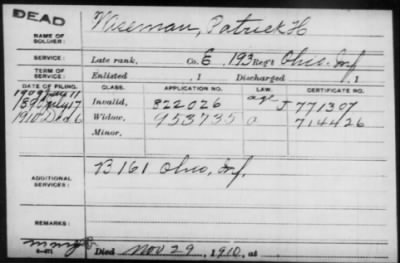 DEAD
Wiseman, Patrick H
NAME OF SOLDIER:
SERVICE: Late rank, Co. E, 193 Reg't Ohio Inf
TERM OF SERVICE: Enlisted , 1 Discharged , 1
DATE OF FILING. CLASS. APPLICATION NO. LAW. CERTIFICATE NO.
Invalid, 822026 age J 771307
1910 Dec 6 Widow, 953735 a 714426
Minor.
B 161 Ohio, Inf.
ADDITIONAL SERVICES:
REMARKS:
Died Nov 29, 1910, at